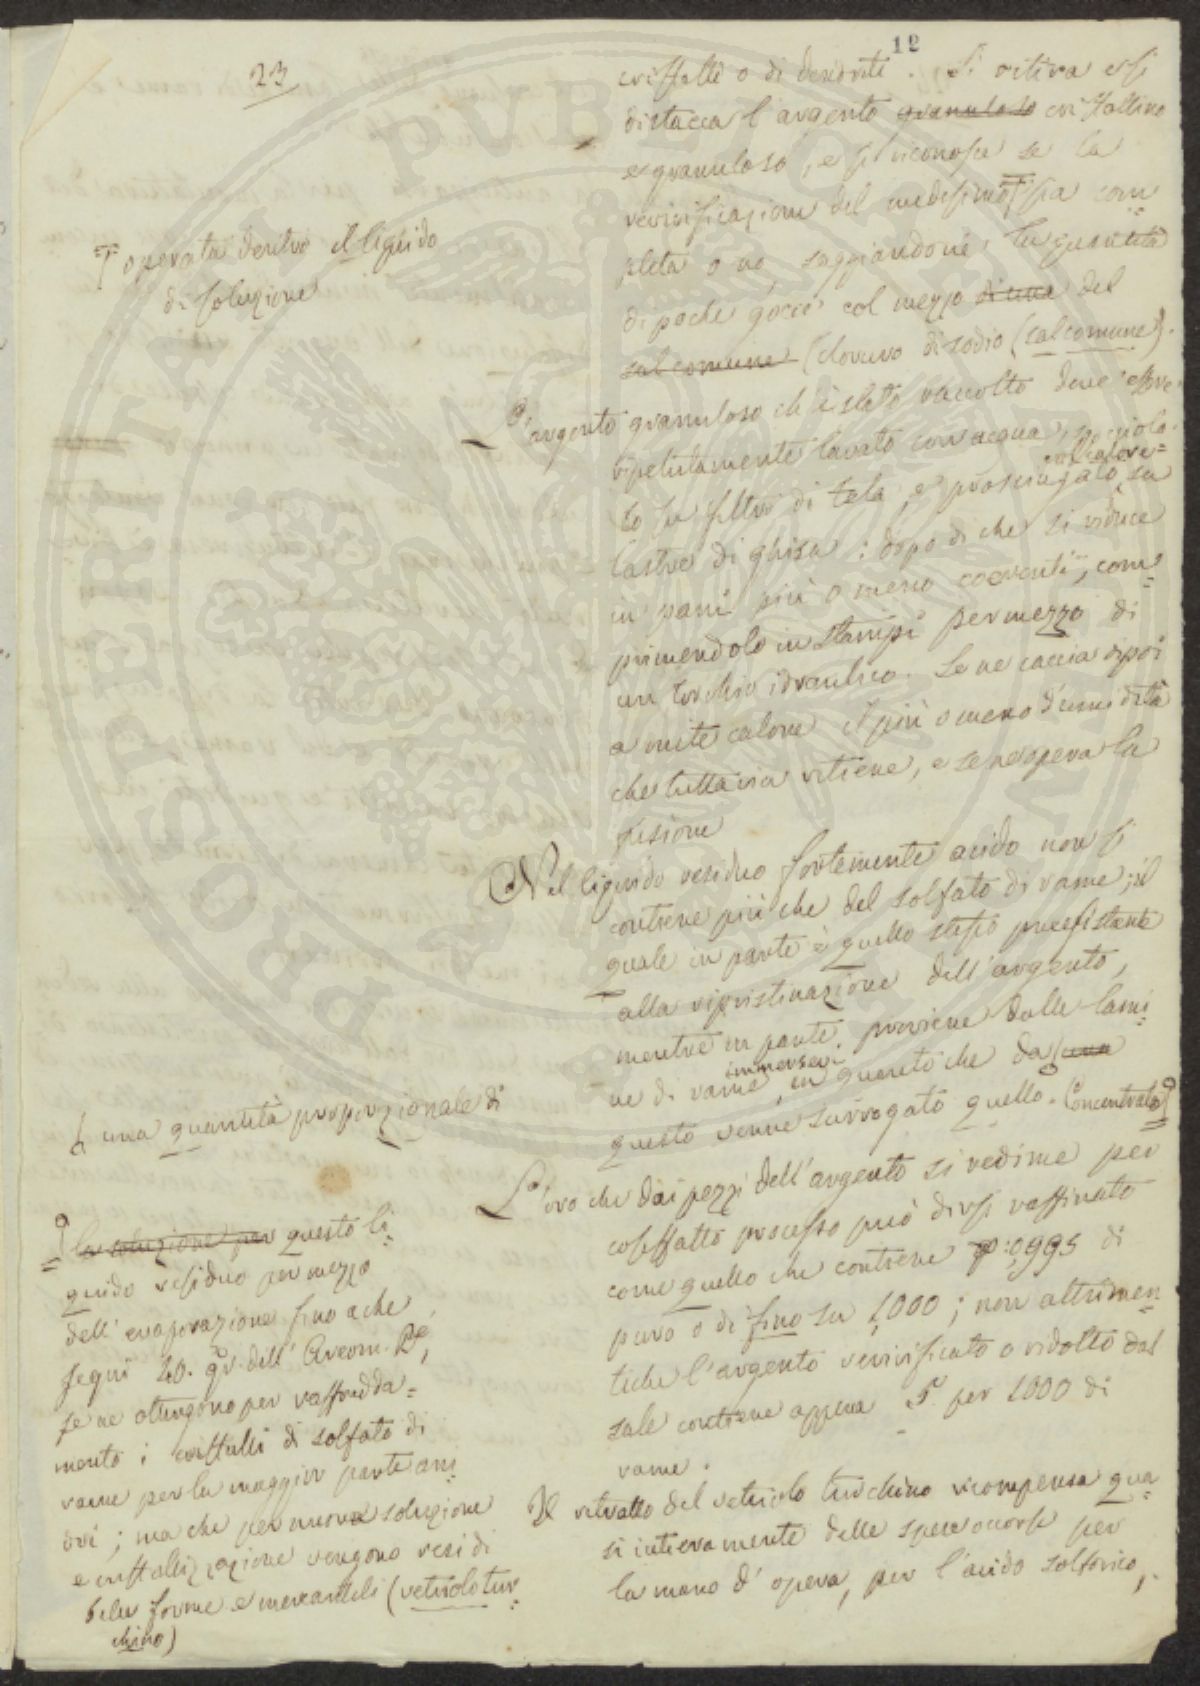 12
23
cristalli o di dendriti. Si ritira e si
distacca l'argento granuloso cristallino
e granuloso, e si riconosce se la
revivificazione del medesimo sia com
pleta o no saggiandone la quantità
di poche gocce col mezzo di una del
sal comune (cloruro di sodio (sal comune).
L'argento granuloso ch'è stato raccolto deve essere
ripetutamente lavato con acqua, sgociola
to su filtri di tela, e prosciugato su
col calore
lastre di ghisa: dopo di che si riduce
in pani più o meno coerenti, com=
primendolo in stampi per mezzo di
un torchio idraulico. Se ne caccia dipoi
a mite calore il più o meno d'umidità
che tuttavia ritiene, e se ne opera la
fusione
Nel liquido residuo fortemente acido non si
contiene più che del solfato di rame; il
quale in parte è quello stesso preesistente
alla ripristinazione dell'argento,
mentre in parte proviene dalle lami
immersevi
ne di rame, in quanto che da una
questo venne surrogato quello. Concentrato
L'oro che dai pezzi dell'argento si redime per
cosiffatto processo può dirsi raffinato
come quello che contiene 0,995 di
puro o di fino su 1,000; non altrimen
ti che l'argento revivificato o ridotto dal
sale contiene appena 5 per 1000 di
rame.
Il ritratto del vetriolo turchino ricompensa qua
si intieramente delle spese occorse per
la mano d'opera, per l'acido solforico,
operata dentro il liquido
di soluzione
una quantità proporzionale di
la soluzione per questo li
quido residuo per mezzo
dell'evaporazione fino a che
segni 40. gr. dell'Areom. Bé,
se ne ottengono per raffredda=
mento i cristalli di solfato di
rame per la maggior parte ani
dri; ma che per nuova soluzione
e cristallizzazione vengono resi di
belle forme e mercantili (vetriolo tur
chino)